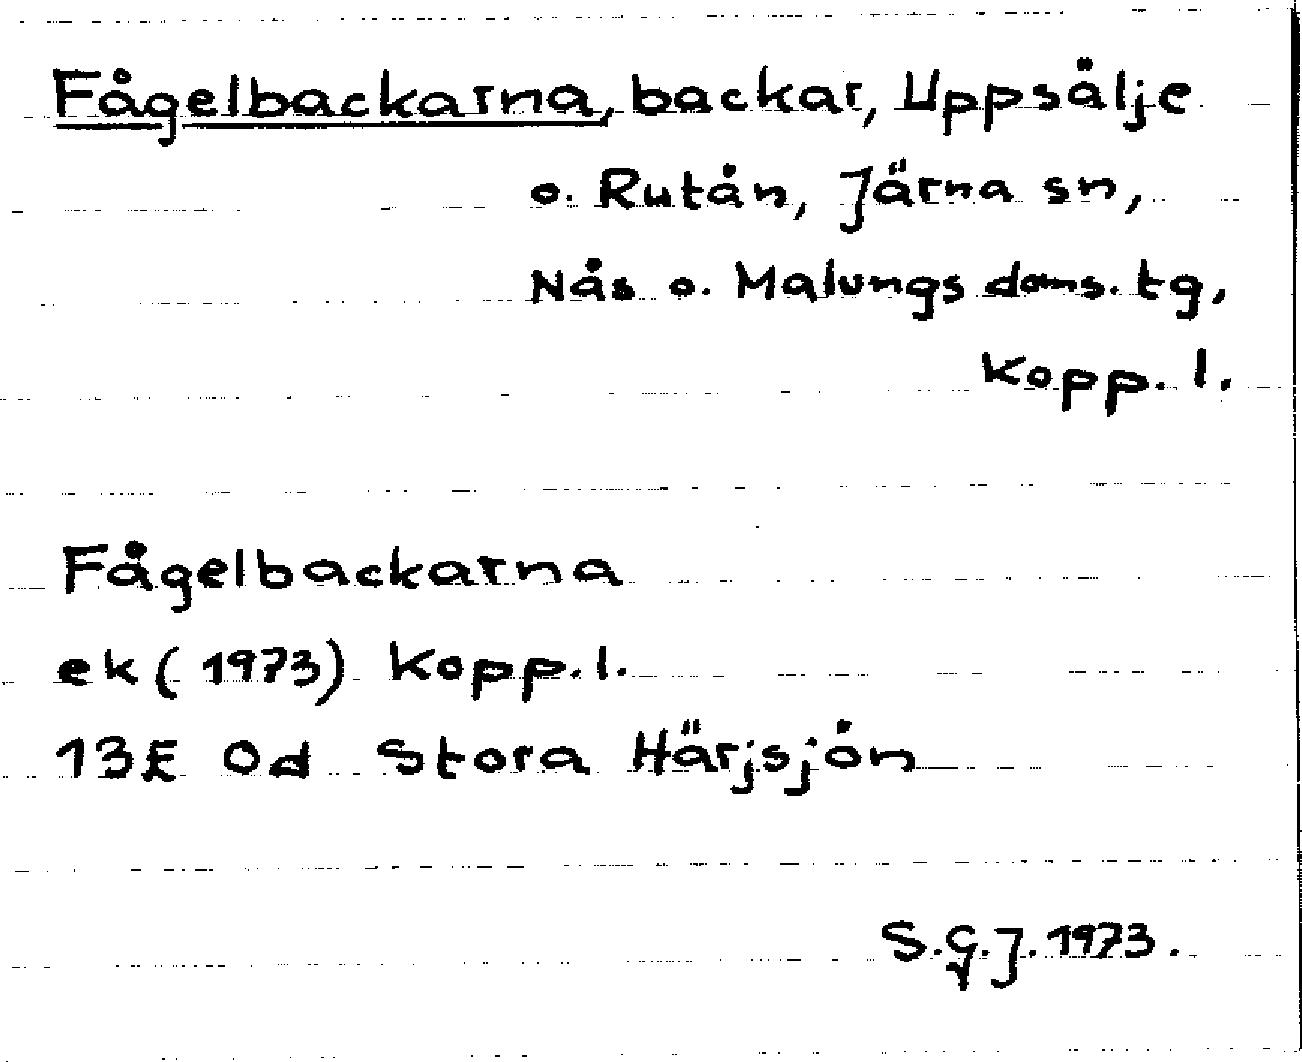 Fågelbackarna, backar, Uppsälje
o. Rutån, Järna sn,
Nås o. Malungs doms. tg,
Kopp. l.
Fågelbackarna
ek (1973) Kopp. l.
13E 0d Stora Härjsjön
S.G.J. 1973.